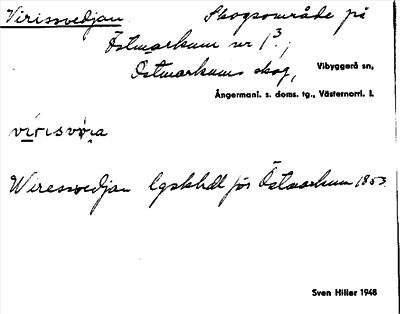 Virissvedjan Skogsområde på
Östmarkum nr 1³,
Östmarkums skog, Vibyggerå sn,
Ångermanl. s. doms. tg., Västernorrl. l.
Wiressvedjan lgskhdl för Östmarkum 1853
Sven Hiller 1948